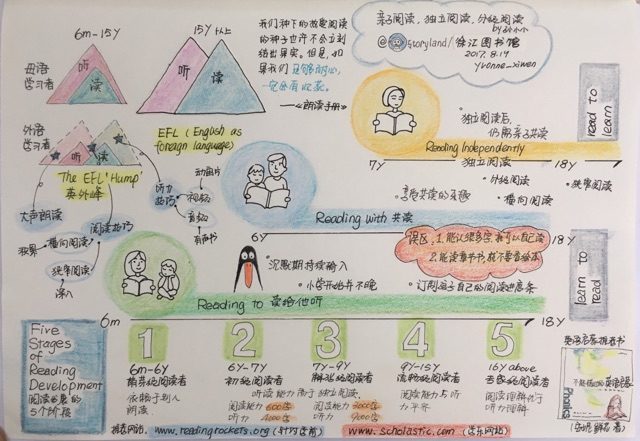 6m-15Y
15Y以上
母语
学习者
听
读
听
读
我们种下的热爱阅读
的种子也许不会立刻
结出果实。但是,如
果我们足够耐心,
一定会有收获。
——《朗读手册》
亲子阅读,独立阅读,分级阅读
@ Storyland/徐汇图书馆
2017.8.19
yvonne_xiwen
外语
学习者
听
读
EFL (English as
foreign language)
The EFL 'Hump'
英外峰
大声朗读
阅读技巧
听力
技巧
动画片
视频
音频
有声书
横向阅读
狭窄阅读
深入
独立阅读后,
仍需亲子共读
read to
learn
Reading Independently
7Y
独立阅读
18Y
分级阅读
横向阅读
狭窄阅读
亲子共读的乐趣
Reading with 共读
6Y
18Y
误区:1.能认很多字,就可以自己读
2.能读章节书,就不要看绘本
沉默期持续输入
小学开始并不晚
订制孩子自己的阅读进度条
learn to
read
Reading to 读给他听
6m
18Y
Five
Stages
of
Reading
Development
阅读发展的
5个阶段
1
2
3
4
5
6m-6Y
萌芽级阅读者
依赖于别人
朗读
6Y-7Y
初级阅读者
听读能力高于独立阅读
阅读能力 600字
听力 4000字
7Y-9Y
解码级阅读者
阅读能力 3000字
听力 9000字
9Y-15Y
流畅级阅读者
阅读能力与听
力平齐
16Y above
专家级阅读者
阅读理解优于
听力理解
英语启蒙推荐书
不能错过的英语启蒙
Phonics
推荐网站: www.readingrockets.org
www.scholastic.com